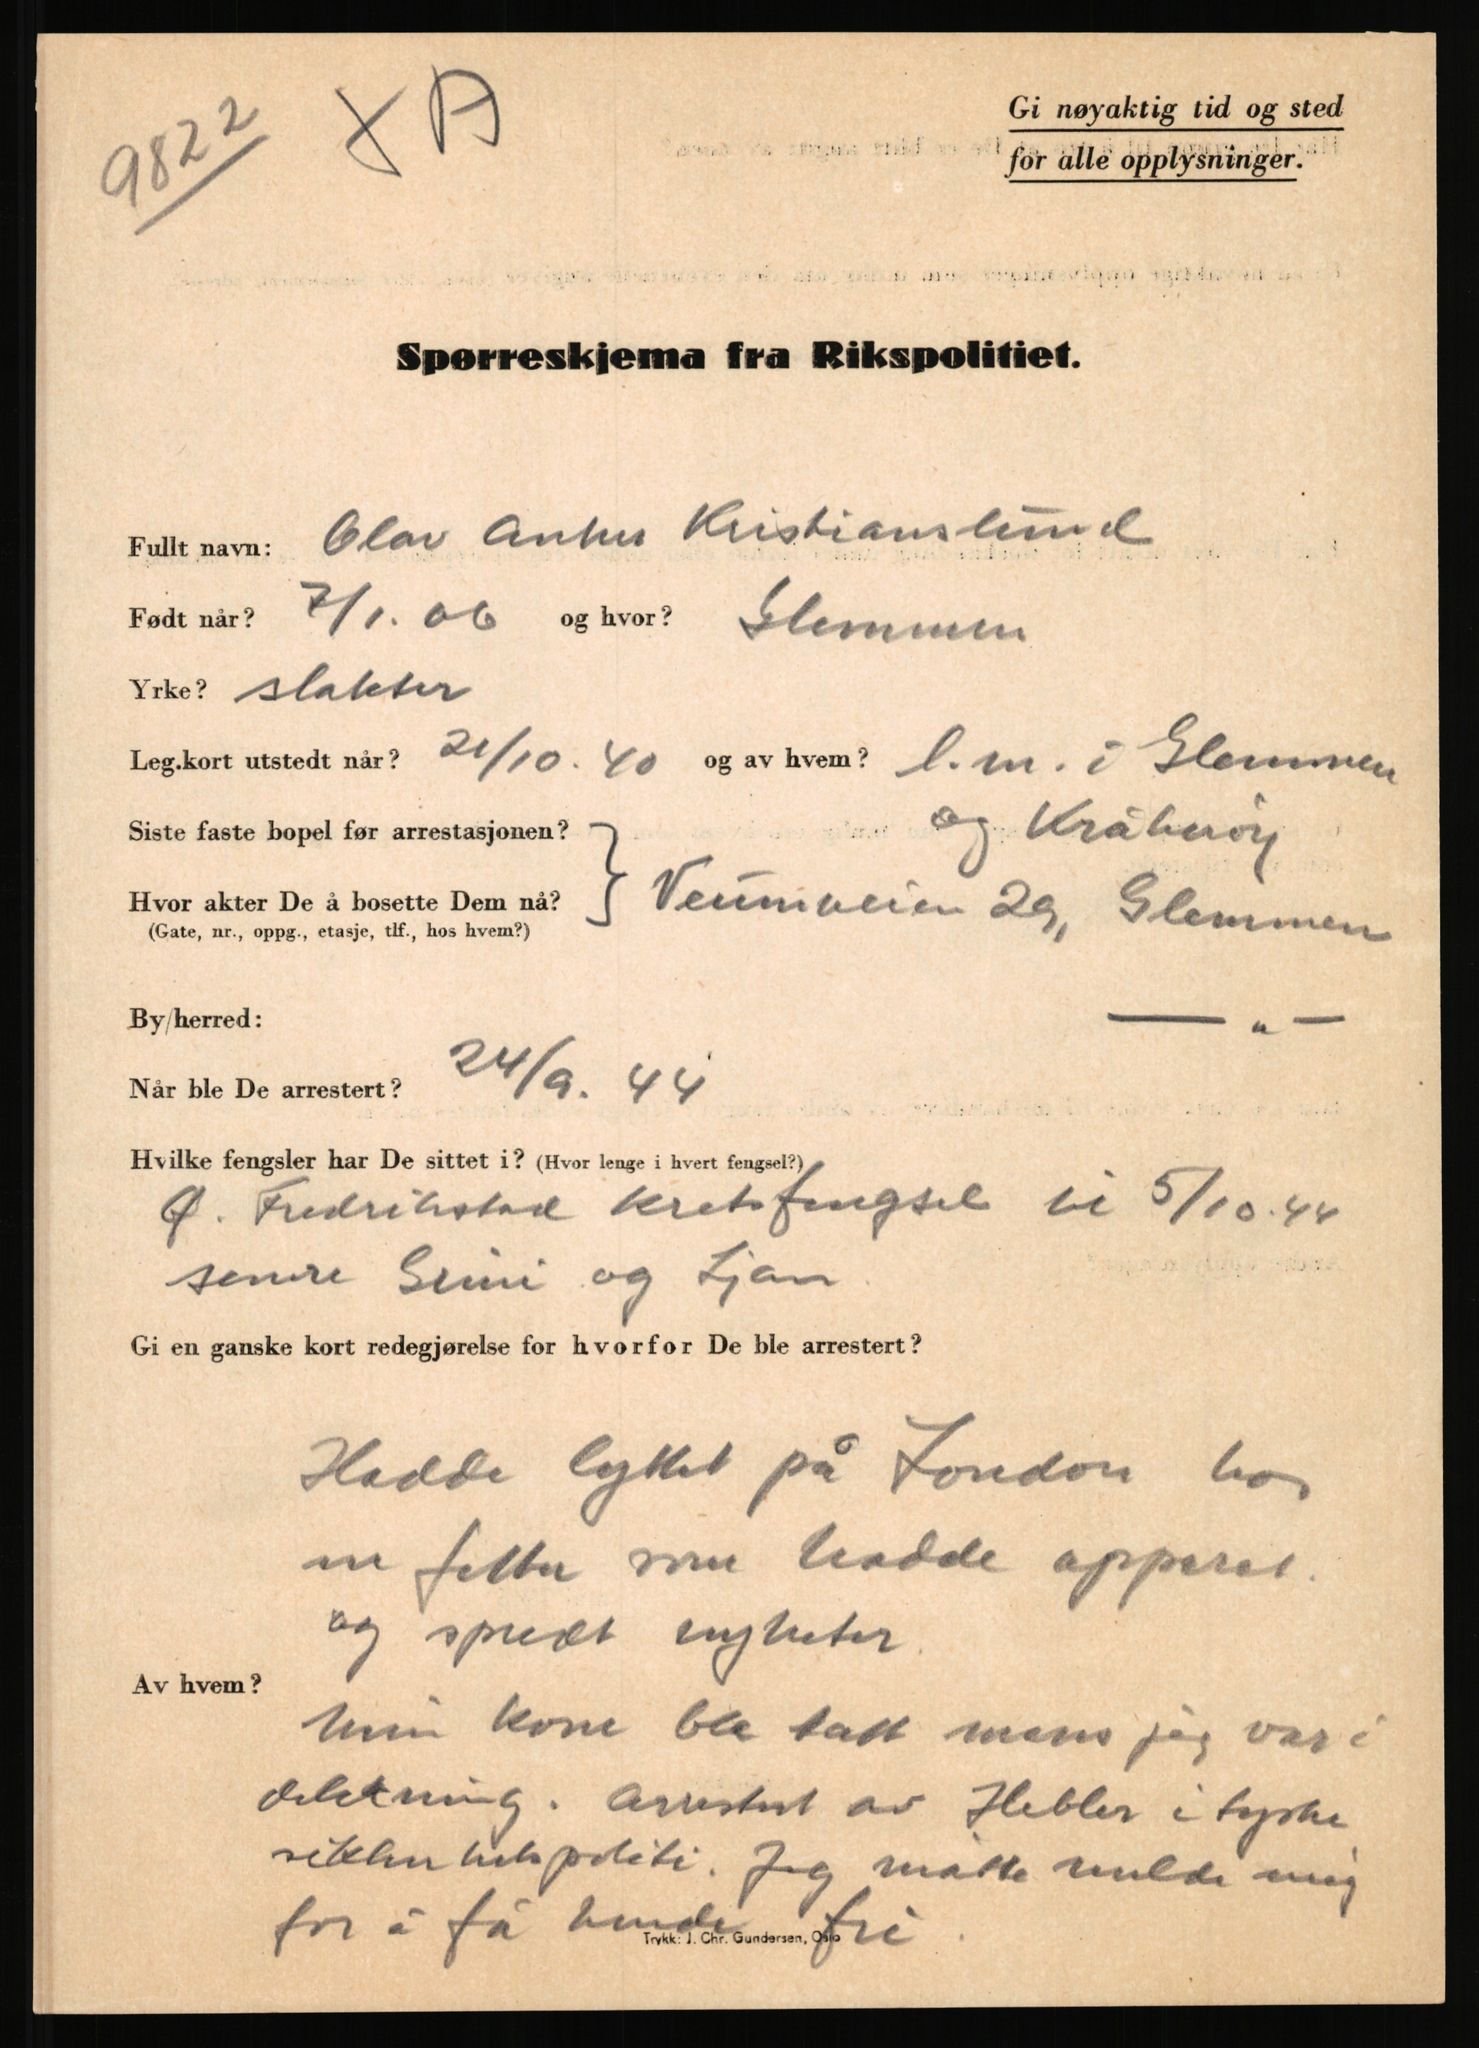 9822
X A
Gi nøyaktig tid og sted
for alle opplysninger.
Spørreskjema fra Rikspolitiet.
Fullt navn: Olav Anker Kristianslund
Født når? 7/1. 06 og hvor? Glemmen
Yrke? slakter
Leg.kort utstedt når? 21/10. 40 og av hvem? l.m. i Glemmen
og Kråkerøy
Siste faste bopel før arrestasjonen?
Hvor akter De å bosette Dem nå? Veumveien 29, Glemmen
(Gate, nr., oppg., etasje, tlf., hos hvem?)
By/herred: — " —
Når ble De arrestert? 24/9. 44
Hvilke fengsler har De sittet i? (Hvor lenge i hvert fengsel?)
Ø. Fredrikstad kretsfengsel til 5/10.44
senere Grini og Ljan
Gi en ganske kort redegjørelse for hvorfor De ble arrestert?
Hadde lyttet på London hos
en fetter som hadde apparat.
og spredt nyheter.
Av hvem?
Min kone ble tatt mens jeg var i
dekning. Arrestert av Hebler i tyske
sikkerhetspoliti. Jeg måtte melde mig
for å få hende fri.
Trykk: J. Chr. Gundersen, Oslo